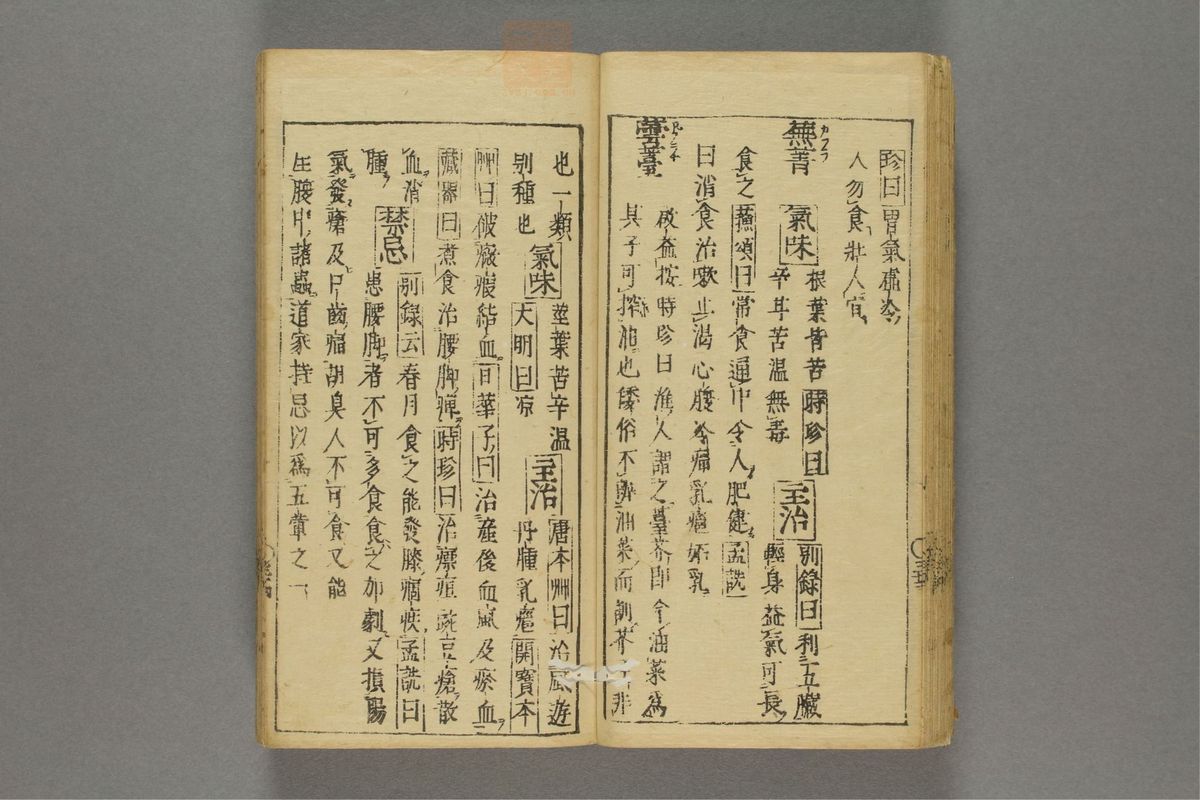 珍曰胃氣虛冷
人勿食壯人宜
蕪菁 カブラ
氣味 根葉皆苦 時珍曰
辛甘苦温無毒
主治 別錄曰 利二五臟
輕身益氣可長
食之 蘇頌曰 常食通中令人肥健 孟詵
曰消食治嗽止渴心腹冷痛乳癰妬乳
蕓薹
啟益按時珍曰淮人謂之薹芥即今油菜爲
其子可搾油也倭俗不辨油菜而油芥 非
也一類
別種也
氣味 莖葉苦辛温
大明曰 凉
主治 唐本草曰 治風遊
丹腫乳癰 開寶本
艸曰 破癥瘕結血 日華子曰 治產後血風及瘀血
藏器曰 煮食治腰脚痺 時珍曰 治瘭疽豌豆瘡散
血消
腫
禁忌 別錄云 春月食之能發膝痼疾 孟詵曰
患腰脚者不可多食食之加劇又損陽
氣發瘡及口齒痛胡臭人不可食又能
生腹中諸蟲道家特忌以爲五葷之一